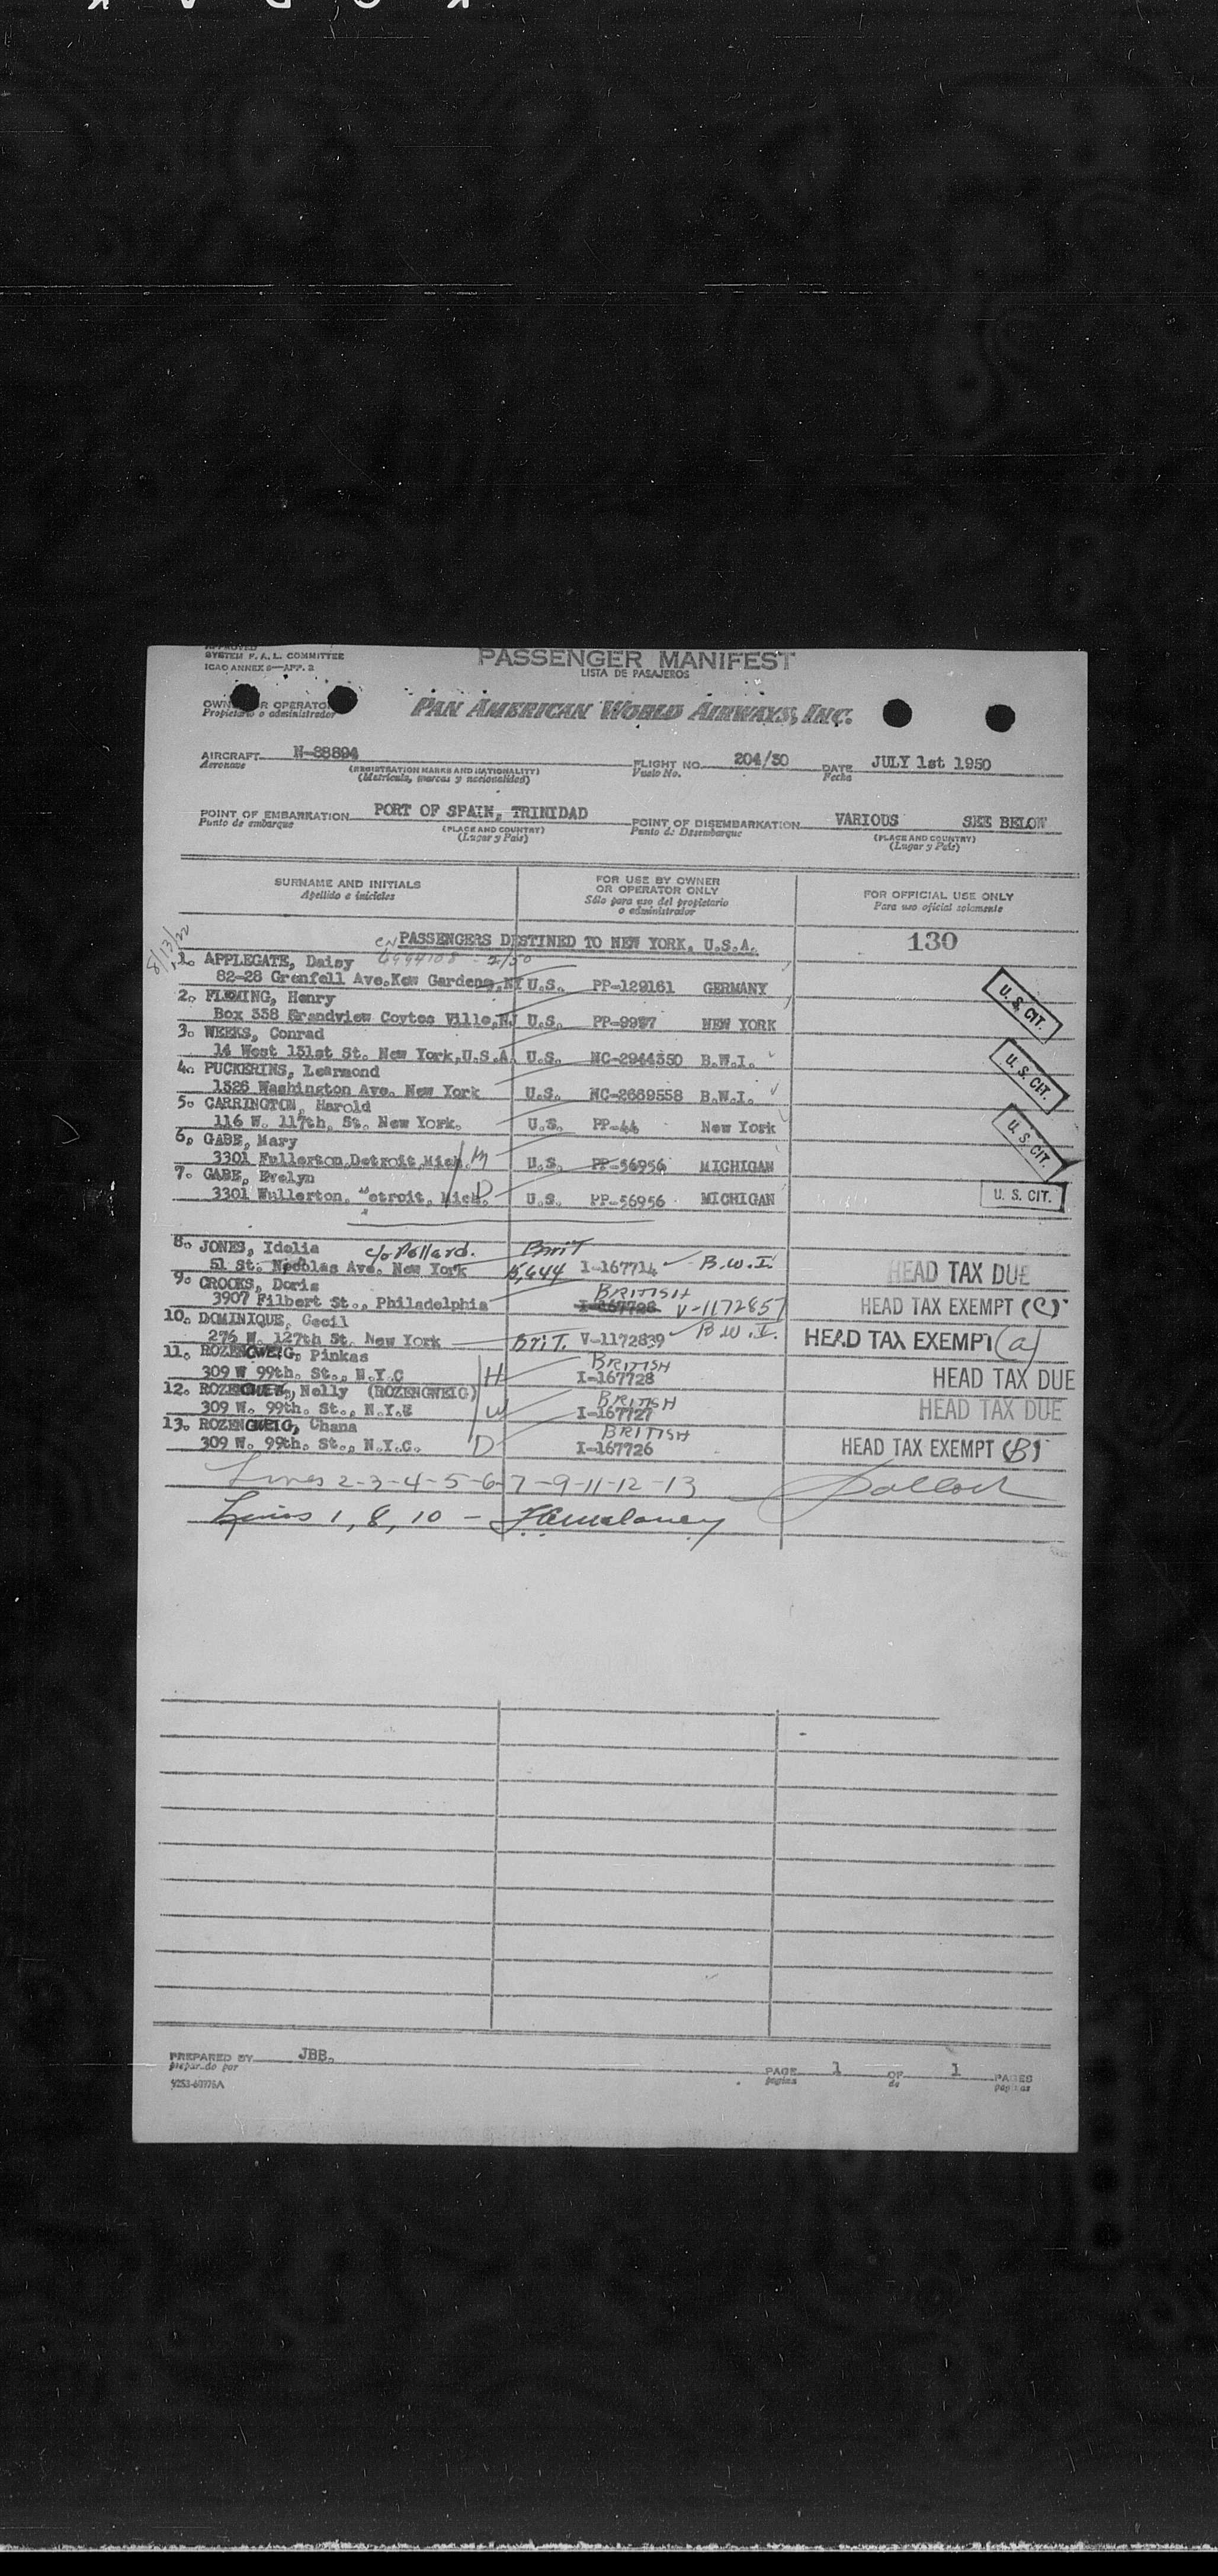 APPROVED
SYSTEM F. A. L. COMMITTEE
ICAO ANNEX 9—APP. 2
PASSENGER MANIFEST
LISTA DE PASAJEROS
OWNER OR OPERATOR
Propietario o administrador
PAN AMERICAN WORLD AIRWAYS, INC.
AIRCRAFT N-88894 FLIGHT NO. 204/30 DATE JULY 1st 1950
Aeronave (REGISTRATION MARKS AND NATIONALITY) Vuelo No. Fecha
(Matricula, marcas y nacionalidad)
POINT OF EMBARKATION PORT OF SPAIN, TRINIDAD POINT OF DISEMBARKATION VARIOUS SEE BELOW
Punto de embarque (PLACE AND COUNTRY) Punto de Desembarque (PLACE AND COUNTRY)
(Lugar y Pais) (Lugar y Pais)
SURNAME AND INITIALS FOR USE BY OWNER OR OPERATOR ONLY FOR OFFICIAL USE ONLY
Apellido e iniciales Sólo para uso del propietario o administrador Para uso oficial solamente
PASSENGERS DESTINED TO NEW YORK, U.S.A. 130
1. APPLEGATE, Daisy
82-28 Grenfell Ave.Kew Gardens,NY U.S. PP-129161 GERMANY U. S. CIT.
2. FLEMING, Henry
Box 358 Grandview Coytes Ville,NJ U.S. PP-9937 NEW YORK
3. WEEKS, Conrad
14 West 131st St. New York,U.S.A. U.S. NC-2944350 B.W.I. U. S. CIT.
4. PUCKERINS, Learmond
1326 Washington Ave. New York U.S. NC-2689558 B.W.I.
5. CARRINGTON, Harold
116 W. 117th. St. New York. U.S. PP-44 New York U. S. CIT.
6. GABE, Mary
3301 Fullerton,Detroit,Mich. M U.S. PP-56956 MICHIGAN
7. GABE, Evelyn
3301 Wullerton, Detroit, Mich. D U.S. PP-56956 MICHIGAN U. S. CIT.
8. JONES, Idalia c/o Pollard. Brit
51 St. Nicolas Ave. New York 15,644 I-167714 B.W.I. HEAD TAX DUE
9. CROOKS, Doris BRITISH
3907 Filbert St., Philadelphia I-167728 V-1172857 HEAD TAX EXEMPT (C)
10. DOMINIQUE, Cecil
276 W. 127th St. New York BriT. V-1172839 B.W.I. HEAD TAX EXEMPT (a)
11. ROZENGWEIG, Pinkas BRITISH
309 W 99th. St., N.Y.C H I-167728 HEAD TAX DUE
12. Nelly (ROZENGWEIG) BRITISH
309 W. 99th. St., W I-167727 HEAD TAX DUE
13. ROZENGWEIG, Chana BRITISH
309 W. 99th. St., N.Y.C. D I-167726 HEAD TAX EXEMPT (B)
Lines 2-3-4-5-6-7-9-11-12-13 Pollock
Lines 1, 8, 10 -
PREPARED BY JBB.
preparado por
PAGE 1 OF 1 PAGES
pagina de paginas